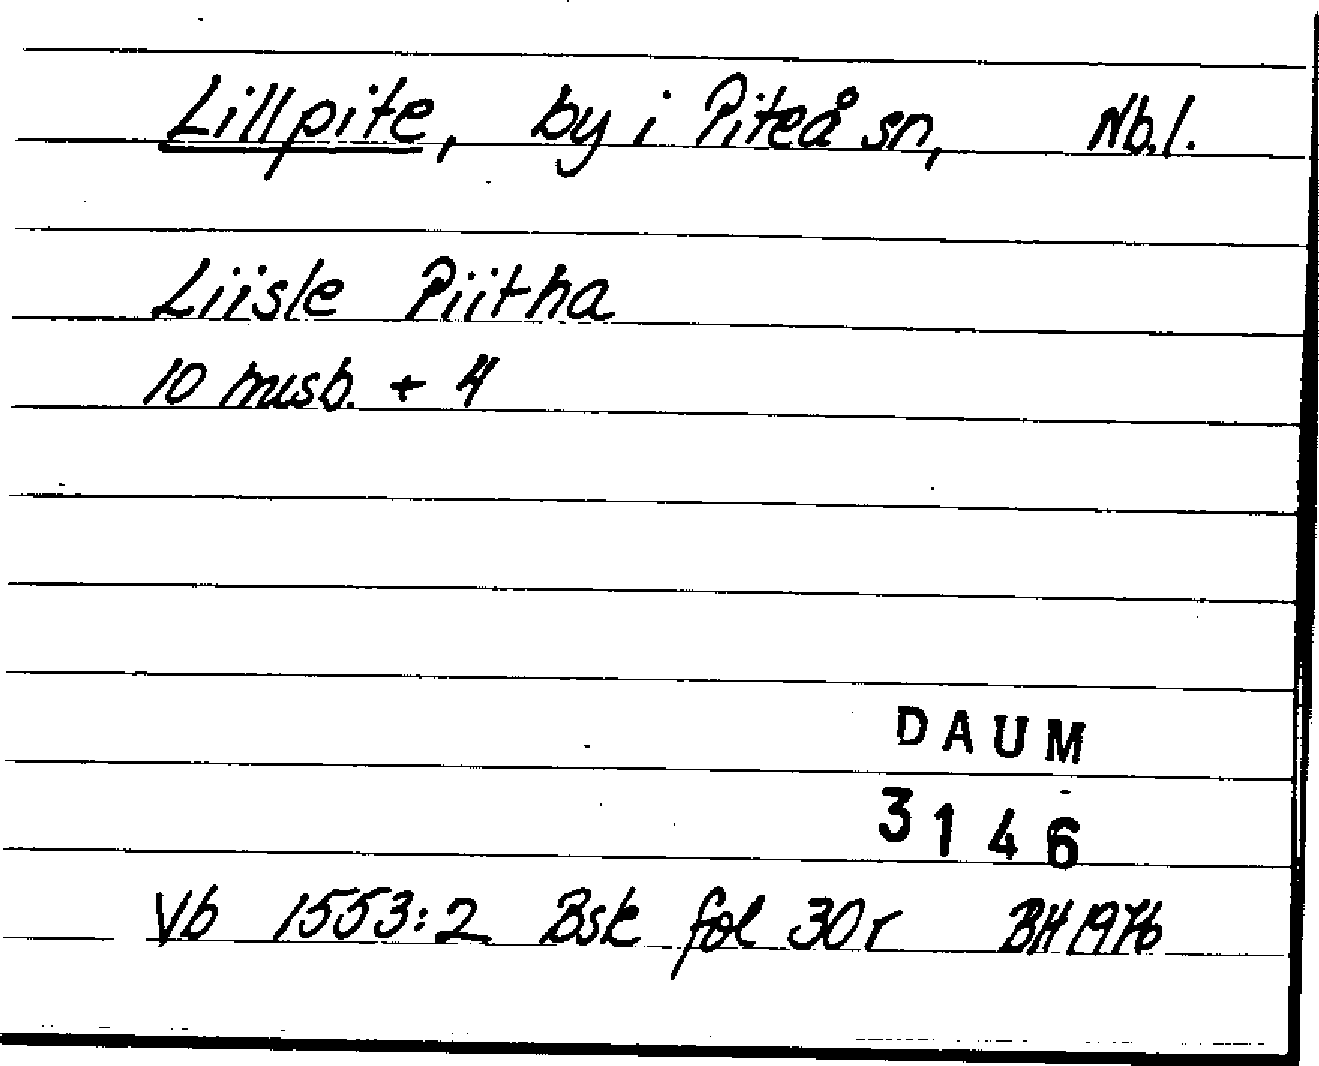 Lillpite, by i Piteå sn, Nb.l.
Liisle Piitha
10 miisb. + 4
DAUM
3146
Vb 1553:2 Bsk fol 30r BH 1976